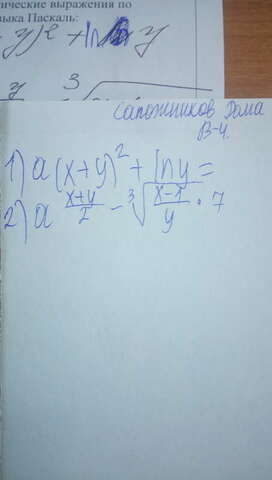 ические выражения по
зыка Паскаль:
y)2 + ln y
y 3√
Сапожников Рома
В-4.
1) a(x+y)² + ln y =
2) a^((x+y)/2) - ³√((x-1)/y) · 7